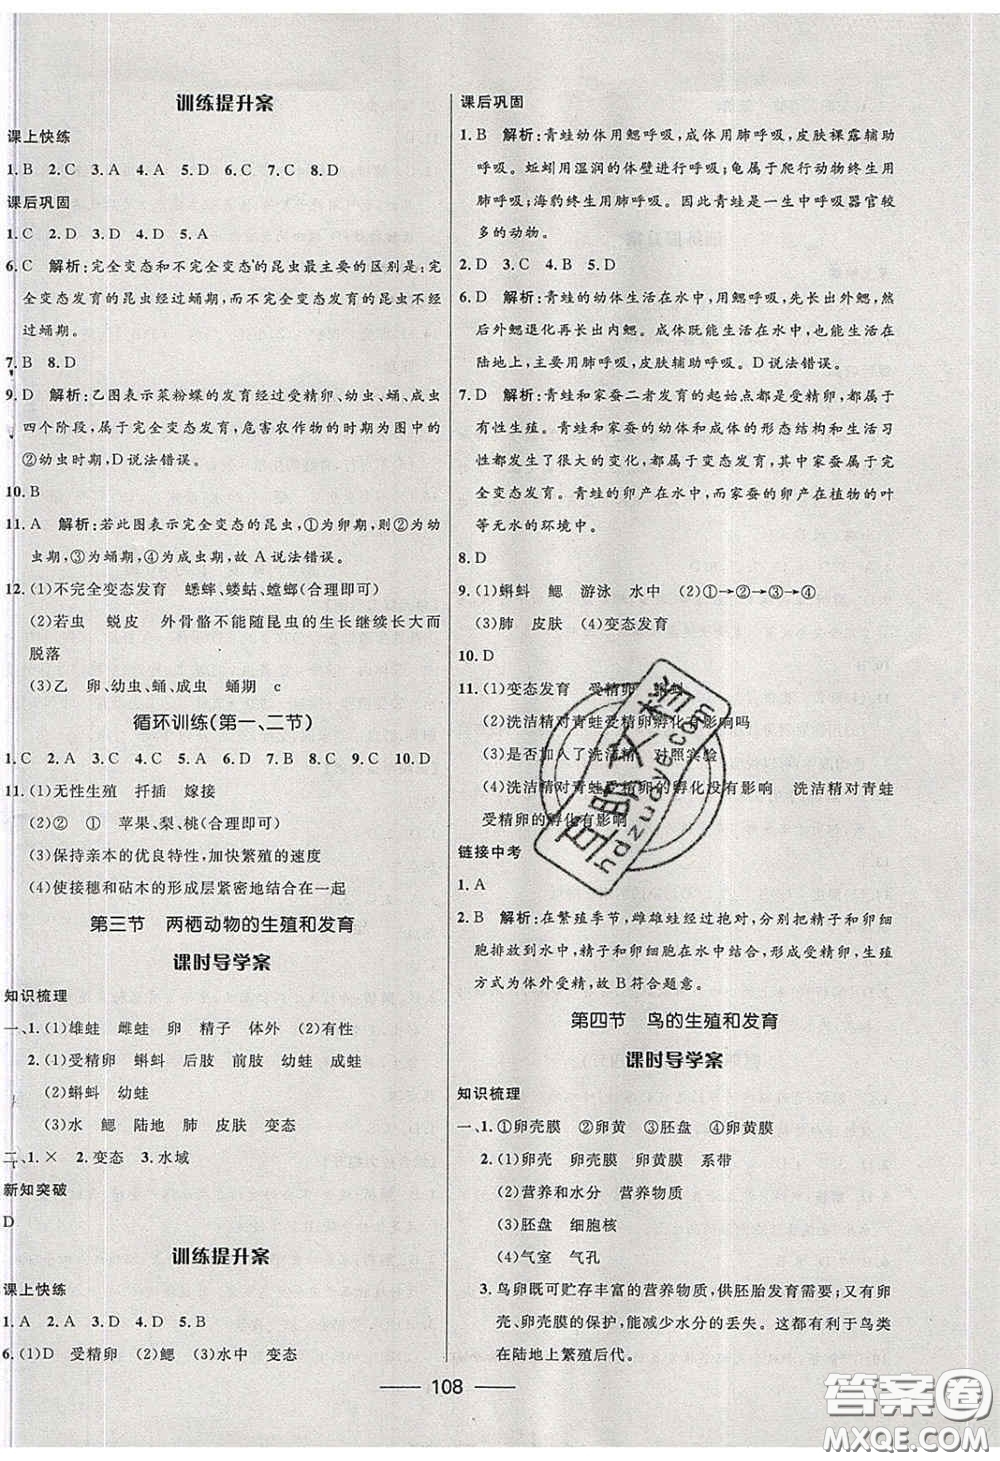 训练提升案
课上快练
1. B 2. C 3. A 4. A 5. D 6. D 7. C 8. D
课后巩固
1. C 2. D 3. D 4. D 5. A
6. C 解析:完全变态和不完全变态的昆虫最主要的区别是:完
全变态发育的昆虫经过蛹期,而不完全变态发育的昆虫不经
过蛹期。
7. B 8. D
9. D 解析:乙图表示菜粉蝶的发育经过受精卵、幼虫、蛹、成虫
四个阶段,属于完全变态发育,危害农作物的时期为图中的
②幼虫时期,D说法错误。
10. B
11. A 解析:若此图表示完全变态的昆虫,①为卵期,则②为幼
虫期,③为蛹期,④为成虫期,故A说法错误。
12. (1)不完全变态发育 蟋蟀、蝼蛄、螳螂(合理即可)
(2)若虫 蜕皮 外骨骼不能随昆虫的生长继续长大而
脱落
(3)乙 卵、幼虫、蛹、成虫 蛹期 c
循环训练(第一、二节)
1. C 2. A 3. C 4. D 5. C 6. B 7. B 8. C 9. C 10. D
11. (1)无性生殖 扦插 嫁接
(2)② ① 苹果、梨、桃(合理即可)
(3)保持亲本的优良特性,加快繁殖的速度
(4)使接穗和砧木的形成层紧密地结合在一起
第三节 两栖动物的生殖和发育
课时导学案
知识梳理
一、1. (1)雄蛙 雌蛙 卵 精子 体外 (2)有性
2. (1)受精卵 蝌蚪 后肢 前肢 幼蛙 成蛙
(2)蝌蚪 幼蛙
(3)水 鳃 陆地 肺 皮肤 变态
二、1. × 2. 变态 3. 水域
新知突破
D
训练提升案
课上快练
1. A 2. A 3. A 4. D 5. B
6. (1)D 受精卵 (2)鳃 (3)水中 变态
课后巩固
1. B 解析:青蛙幼体用鳃呼吸,成体用肺呼吸,皮肤裸露辅助
呼吸。蚯蚓用湿润的体壁进行呼吸;龟属于爬行动物终生用
肺呼吸;海豹终生用肺呼吸。因此青蛙是一生中呼吸器官较
多的动物。
2. D 3. C 4. B 5. D
6. D 解析:青蛙的幼体生活在水中,用鳃呼吸,先长出外鳃,然
后外鳃退化再长出内鳃。成体既能生活在水中,又能生活在
陆地上,主要用肺呼吸,皮肤辅助呼吸。D说法错误。
7. D 解析:青蛙和家蚕二者发育的起始点都是受精卵,都属于
有性生殖。青蛙和家蚕的幼体和成体的形态结构和生活习
性都发生了很大的变化,都属于变态发育,其中家蚕属于完
全变态发育。青蛙的卵产在水中,而家蚕的卵产在植物的叶
等无水的环境中。
8. D
9. (1)蝌蚪 鳃 游泳 水中 (2)①→②→③→④
(3)肺 皮肤 (4)变态发育
10. D
11. (1)变态发育 受精卵 蝌蚪
(2)洗洁精对青蛙受精卵孵化有影响吗
(3)是否加入了洗洁精 对照实验
(4)洗洁精对青蛙受精卵的孵化没有影响 洗洁精对青蛙
受精卵的孵化有影响
链接中考
1. A
2. B 解析:在繁殖季节,雌雄蛙经过抱对,分别把精子和卵细
胞排放到水中,精子和卵细胞在水中结合,形成受精卵,生殖
方式为体外受精,故B符合题意。
第四节 鸟的生殖和发育
课时导学案
知识梳理
一、1. ①卵壳膜 ②卵黄 ③胚盘 ④卵黄膜
2. (1)卵壳 卵壳膜 卵黄膜 系带
(2)营养和水分 营养物质
(3)胚盘 细胞核
(4)气室 气孔
3. 鸟卵既可贮存丰富的营养物质,供胚胎发育需要,又有卵
壳、卵壳膜的保护,能减少水分的丢失。这都有利于鸟类
在陆地上繁殖后代。
108
互助文档
hdzuoye.com
答案圈
MXQE.COM